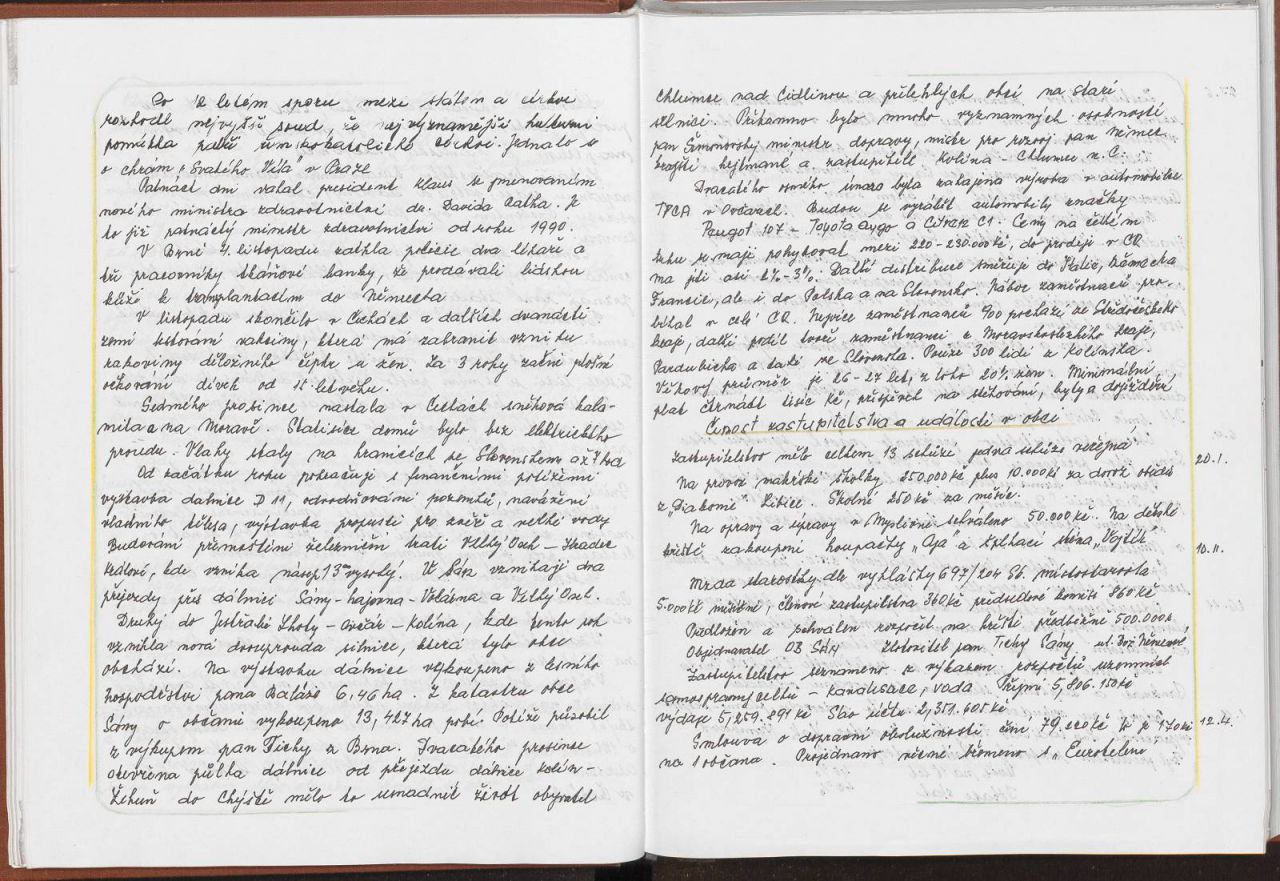 Po 12 letém sporu mezi státem a církví
rozhodl nejvyšší soud, že nejvýznamnější kulturní
památka patří římskokatolické církvi. Jednalo se
o chrám "Svatého Víta" v Praze
Patnáct dní váhal president Klaus se jmenováním
nového ministra zdravotnictví dr. Davida Ratha. Je
to již patnáctý ministr zdravotnictví od roku 1990.
V Brně 4. listopadu zatkla policie dva lékaře a
tři pracovníky tkáňové banky, že prodávali lidskou
kůži k transplantacím do Německa
V listopadu skončilo v Čechách a dalších dvanácti
zemí testování vakcíny, která má zabránit vzniku
rakoviny děložního čípku u žen. Za 3 roky začne plošné
očkování dívek od 15 let věku.
Sedmého prosince nastala v Čechách sněhová kala-
mita a na Moravě. Statisíce domů bylo bez elektrického
proudu. Vlaky stály na hranicích se Slovenskem až 7 hod
Od začátku roku pokračuje s finančními potížemi
výstavba dálnice D 11, odvodňování pozemků, navážení
vlastního tělesa, výstavba propustí pro zvěř a velké vody
Budování přemostění železniční trati Velký Osek - Hradec
Králové, kde vzniká násep 13 m vysoký. U Sán vznikají dva
přejezdy přes dálnici Sány - hájovna - Volárna a Velký Osek.
Druhý do Jestřabí Lhoty - Ovčár - Kolína, kde tento rok
vznikla nová dvouproudá silnice, která tyto obce
obchází. Na výstavbu dálnice vykoupeno z lesního
hospodářství pana Baláže 6,46 ha. Z katastru obce
Sány o občanů vykoupeno 13,427 ha polí. Potíže působil
z výkupem pan Tichý z Brna. Dvacátého prosince
otevřena půlka dálnice od přejezdu dálnice Kolín -
Žehuň do Chýště mělo to usnadnit život obyvatel
Chlumce nad Cidlinou a přilehlých obcí na staré
silnici. Přítomno bylo mnoho význammých osobností
pan Šimonovský ministr dopravy, ministr pro rozvoj pan Němec
krajští hejtmané a zastupitelé Kolína - Chlumce n. C.
Dvacátého osmého února byla zahájena výroba v automobilce
TPCA v Ovčárech. Budou se vyrábět automobily značky
Peugot 107 - Toyota aygo a Citroen C1. Ceny na českém
trhu se mají pohybovat mezi 220 - 230.000 kč, do prodeje v ČR
má jíti asi 2% - 3%. Další distribuce směřuje do Itálie, Německa
Francie, ale i do Polska a na Slovensko. Nábor zaměstnanců pro-
bíhal v celé ČR. Nejvíce zaměstnanců 900 pochází ze Středočeského
kraje, další podíl tvoří zaměstnanci z Moravskoslezkého kraje,
Pardubicka a také ze Slovenska. Pouze 300 lidí z Kolínska.
Věkový průměr je 26 - 27 let, z toho 20% žen. Minimální
plat čtrnáct tisíc Kč, příspěvek na stěhování, byty a dojíždění
Činost zastupitelstva a události v obci
Zastupitelstvo mělo celkem 13 schůzí jedná schůze veřejná
20.1.
Na provoz mateřské školky 250.000 kč plus 10.000 kč za dovoz obědů
z "Diakonie" Libice. Školné 250 kč za měsíc.
Na opravy a úpravy v Myslivně schváleno 50.000 Kč. Na dětské
hřiště zakoupení houpačky "Aja" a šplhací stěna "Vojtík"
10.II.
Mzda starostky dle vyhlášky 697/204 Sb. místostarosta
5.000 kč měsíčně, členové zastupitelstva 360 kč předsedové komisí 860 kč
Předložen a schválen rozpočet na hřiště předběžně 500.000 kč
Objednavatel OB SÁNY Zhotovitel pan Tichý Sány ul. Bož. Němcové
Zastupitelstvo seznámeno s výkazem rozpočtů územních
samosprávný celků - kanalisace, voda Příjmy 5,806.150 kč
výdaje 5,259.891 Kč Stav účtu 2,351.605 kč
Smlouva o dopravní obslužnosti činí 79.220 kč to je 170 kč
12.4.
na 1 občana. Projednáno věcné břemeno s "Eurotelem"